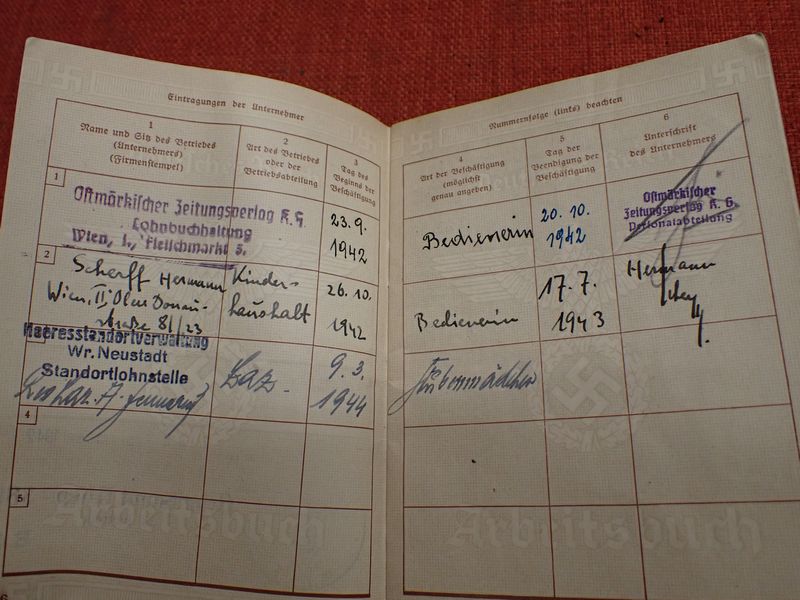 Eintragungen der Unternehmer
1
Name und Sitz des Betriebes
(Unternehmers)
(Firmenstempel)
2
Art des Betriebes
oder der
Betriebsabteilung
3
Tag des
Beginns der
Beschäftigung
1
Ostmärkischer Zeitungsverlag K. G.
Lohnbuchhaltung
Wien, I., Fleischmarkt 5.
23. 9.
1942
2
Scherff Hermann
Wien, II. Obere Donau-
straße 81/23
Kinder-
haushalt
26. 10.
1942
Heeresstandortverwaltung
Wr. Neustadt
Standortlohnstelle
Laz.
9. 3.
1944
4
5
Arbeitsbuch
Nummernfolge (links) beachten
4
Art der Beschäftigung
(möglichst
genau angeben)
5
Tag der
Beendigung der
Beschäftigung
6
Unterschrift
des Unternehmers
Bedienerin
20. 10.
1942
Ostmärkischer
Zeitungsverlag K. G.
Personalabteilung
Bedienerin
17. 7.
1943
Hermann
Stubenmädchen
Arbeitsbuch